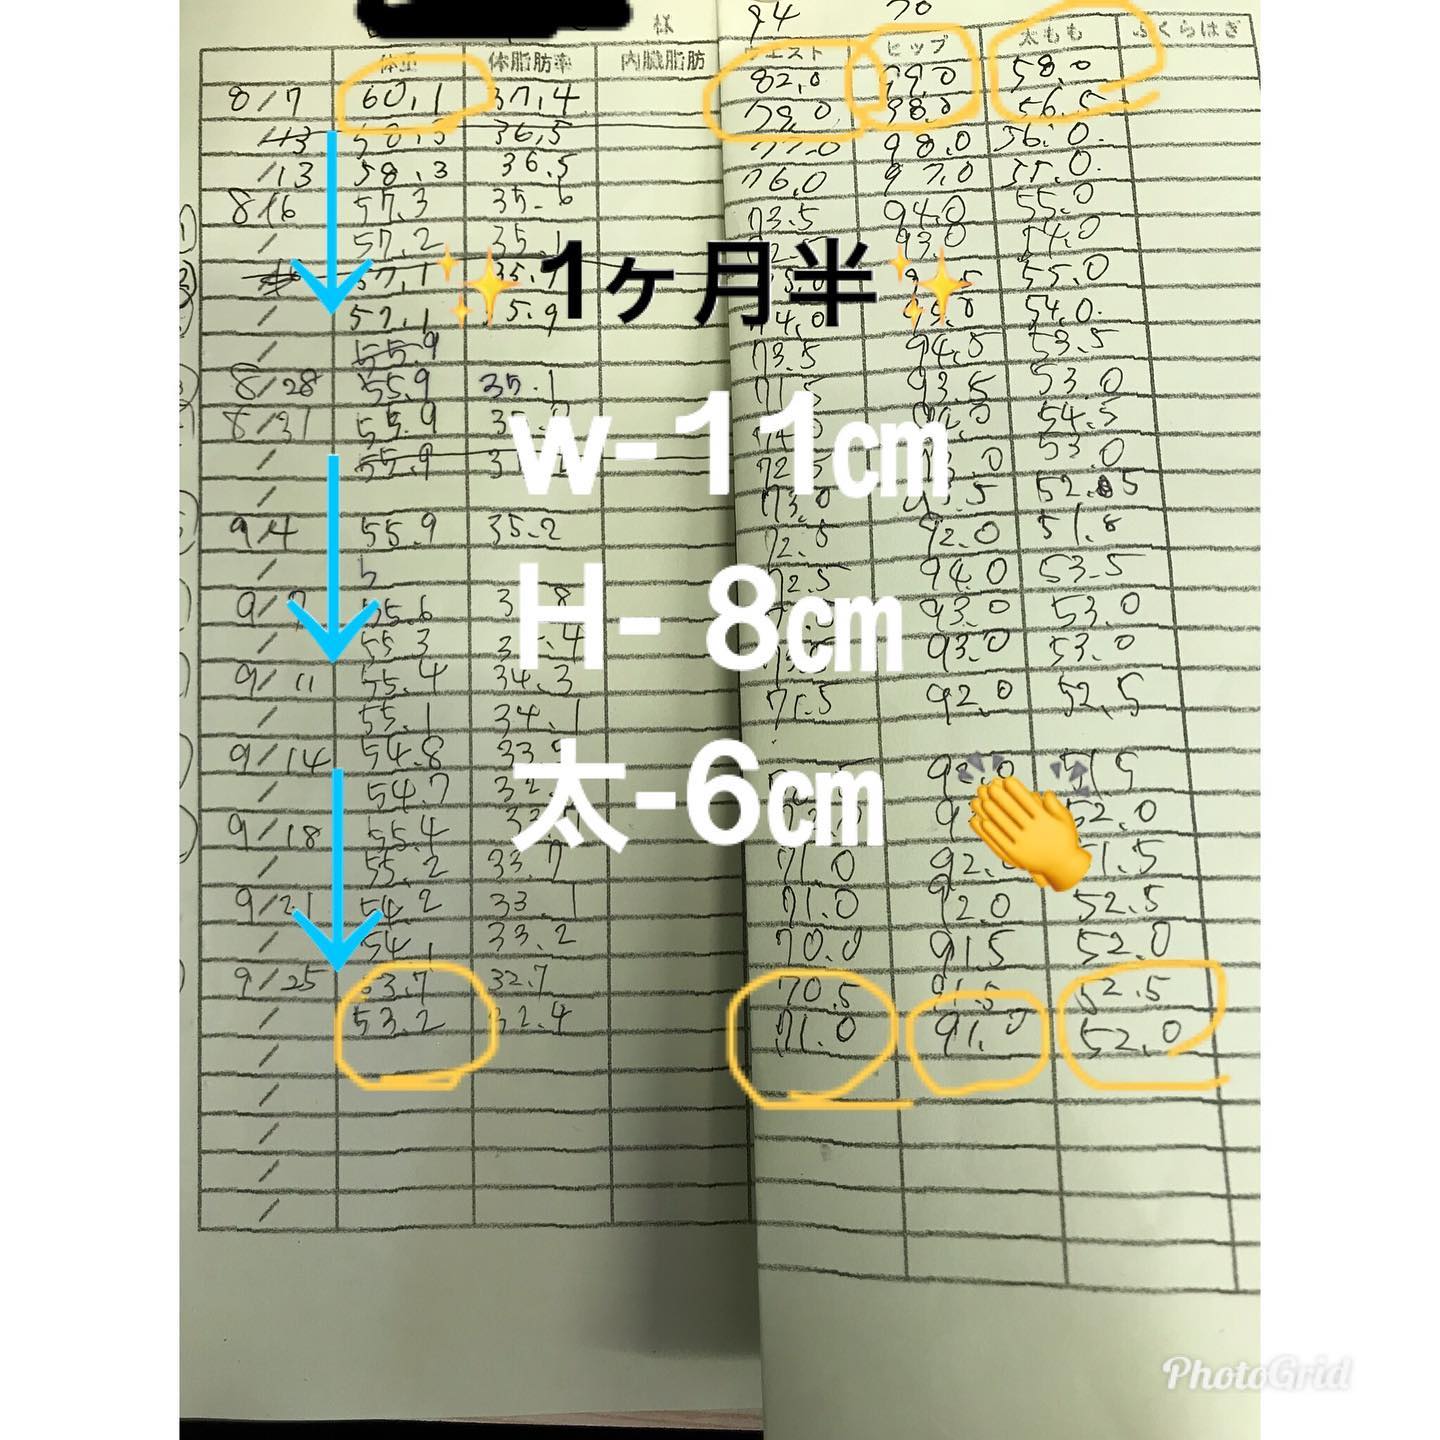 様
体重 体脂肪率 内臓脂肪
8/7 60.1 37.4
/13 58.3 36.5
8/16 57.3 35.6
/ 57.2 35.1
/ 57.1
/ 55.9
8/28 55.9 35.1
8/31 55.9
/ 55.9
/
9/4 55.9 35.2
/
55.6
/ 55.3
9/11 55.4 34.3
/ 55.1 34.1
9/14 54.8
/ 54.7
9/18 55.4
/ 55.2 33.7
9/21 54.2 33.1
/ 54.1 33.2
9/25 53.7 32.7
/ 53.2 32.4
/
/
/
/
/
94 70
ウエスト ヒップ 太もも ふくらはぎ
82.0 99.0 58.0
79.0 98.0 56.5
77.0 98.0 56.0
76.0 97.0 55.0
73.5 94.0 55.0
93.0 54.0
55.0
54.0
73.5 94.5 53.5
71.5 93.5 53.0
54.5
72.5 53.0
73.0
72.5 92.0 51.8
72.5 94.0 53.5
93.0 53.0
93.0 53.0
71.5 92.0 52.5
51.5
52.0
71.0 51.5
71.0 92.0 52.5
70.0 91.5 52.0
70.5 91.5 52.5
71.0 91.0 52.0
1ヶ月半
w-11㎝
H- 8㎝
太-6㎝
PhotoGrid